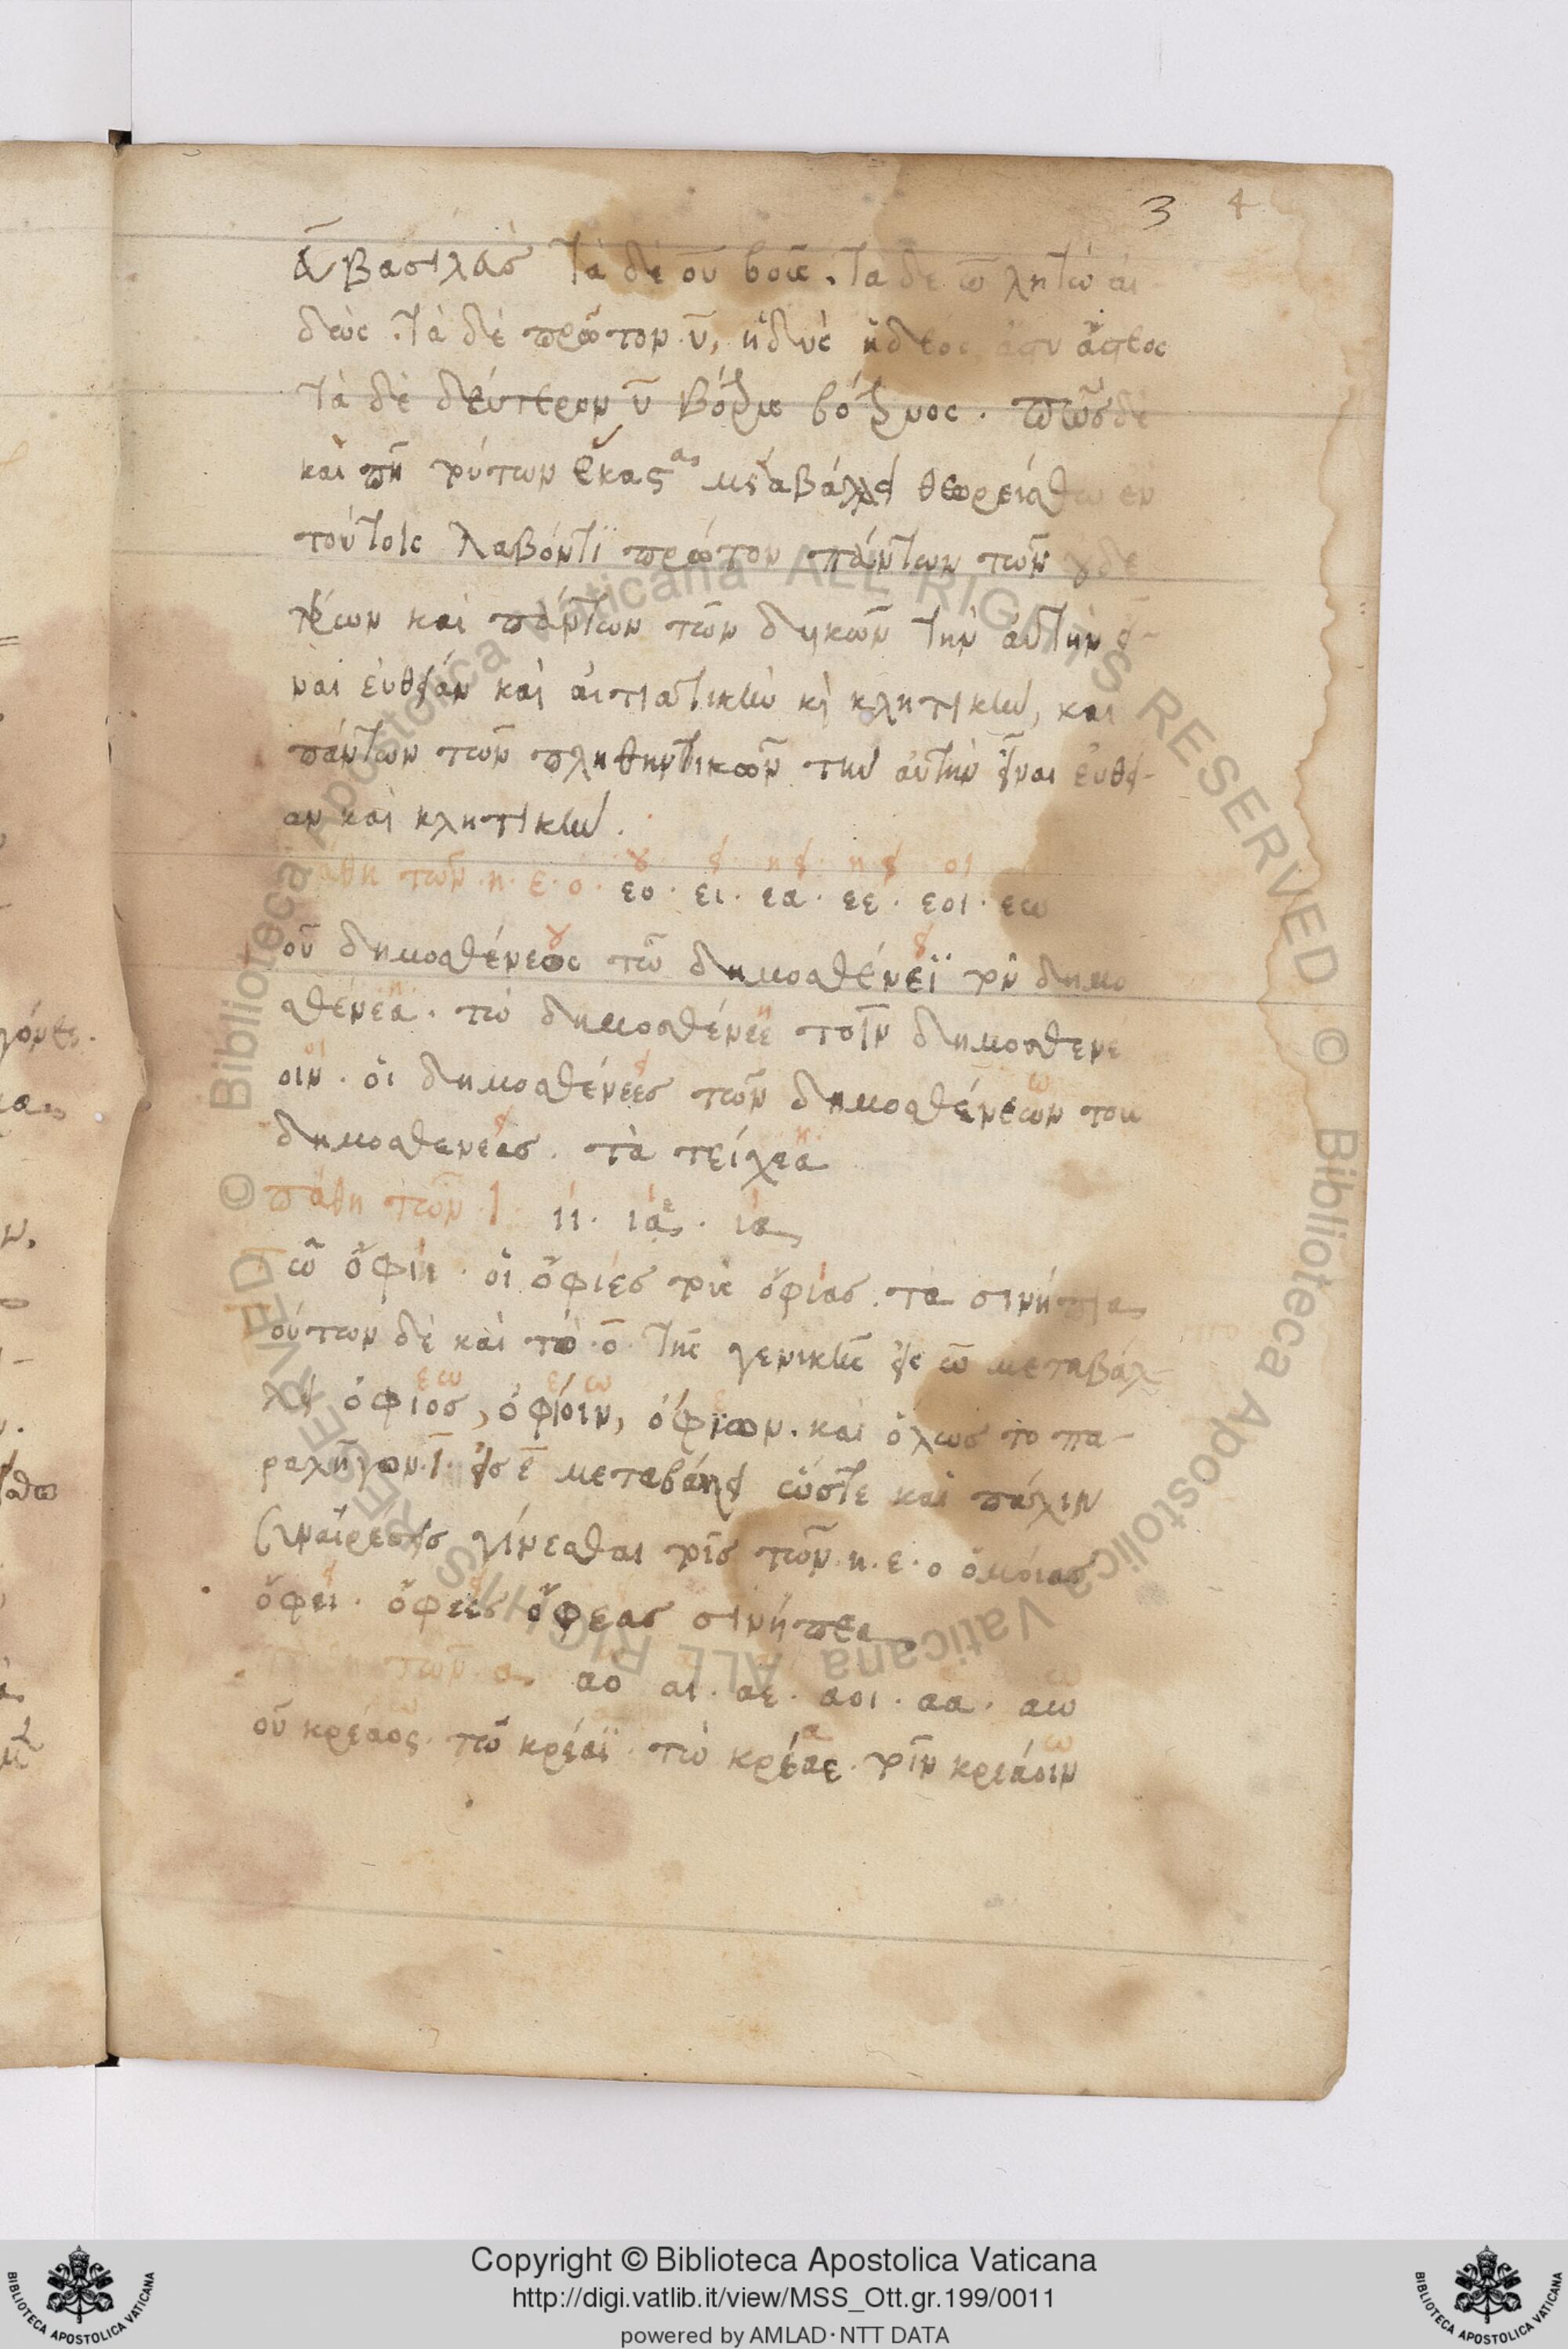 3 4
εῡ βασιλεύς τὰ δὲ οῡ βοῦς. τὰ δὲ ω̄ λητὼ αἰ-
δώς. τὰ δὲ πρῶτον ῡ, ἡδὺς ἡδέος ἄστυ ἄστεος
τὰ δὲ δεύτερον ῡ βότρυς βότρυος. πῶς δὲ
καὶ πῆ τούτων ἕκαστα μεταβάλλει θεωρείσθω ἐν
τούτοις λαβόντϊ πρῶτον πάντων τῶν οὐδε
τέρων καὶ πάντων τῶν δυϊκῶν τὴν αὐτὴν εἶ-
ναι εὐθεῖαν καὶ αἰτιατικὴν κὶ κλητικὴν, καὶ
πάντων τῶν πληθυντικῶν τὴν αὐτὴν εἶναι εὐθεῖ-
αν καὶ κλητικὴν.
ου ει η ει η ει οι
άθη τῶν η. ε. ο. εο. ει. εα. εε. εοι. εω
οῦ δημοσθένεος τῶ δημοσθένεϊ τὸν δημο
σθένεα. τὼ δημοσθένεε τοῖν δημοσθενέ
οιν. οἱ δημοσθένεες τῶν δημοσθενέων τοὺς
δημοσθένεας. τὰ τείχεα
πάθη τῶν ι ιι. ιε. ια
ῶ ὄφιι. οἱ ὄφιες τοὺς ὄφιας. τὰ σινήπια
ούτων δὲ καὶ τὸ ο̄ τῆς γενικῆς εἰς ω̄ μεταβάλ-
λει ὄφιος, ὀφίοιν, ὀφίων. καὶ ὅλως τὸ πα-
ραλῆγον ῑ εἰς ε̄ μεταβάλλει ὥστε καὶ πάλιν
συναίρεσις γίνεσθαι τοῖς τῶν η. ε. ο ὁμοίας
ὄφεϊ. ὄφεες ὄφεας σινήπεα
τῶν α αο αι. αε. αοι. αα. αω
οῦ κρέαος. τῶ κρέαϊ. τὼ κρέαε. τοῖν κρεάοιν
Copyright © Biblioteca Apostolica Vaticana
http://digi.vatlib.it/view/MSS_Ott.gr.199/0011
powered by AMLAD·NTT DATA
BIBLIOTECA APOSTOLICA VATICANA
BIBLIOTECA APOSTOLICA VATICANA
© Biblioteca Apostolica Vaticana ALL RIGHTS RESERVED © Biblioteca Apostolica Vaticana ALL RIGHTS RESERVED